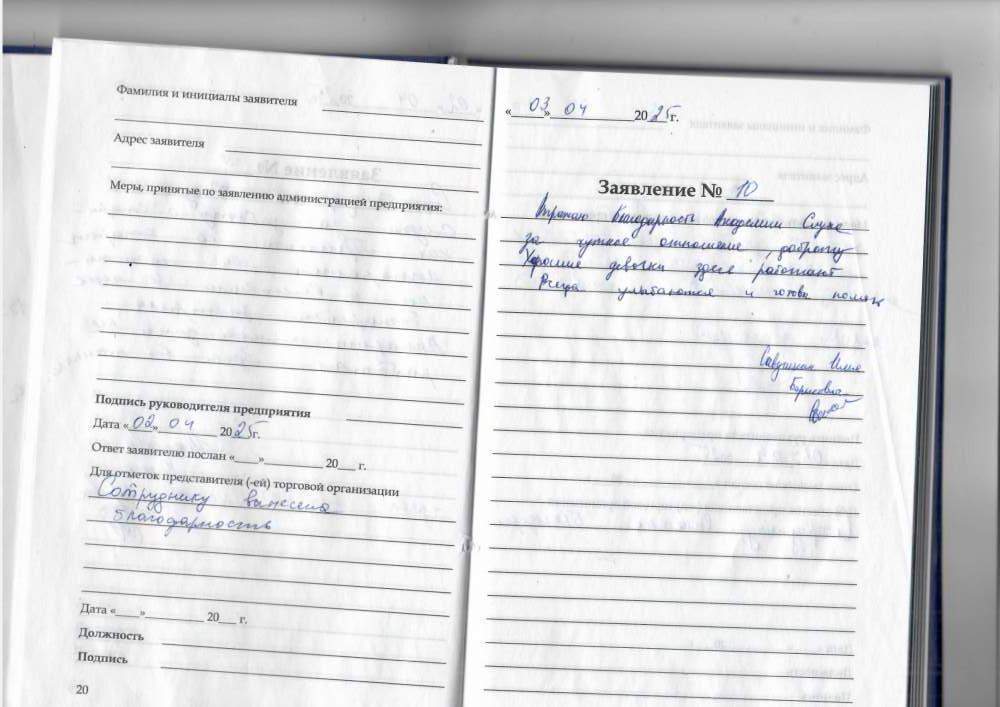 Фамилия и инициалы заявителя
Адрес заявителя
Меры, принятые по заявлению администрацией предприятия:
Подпись руководителя предприятия
Дата «02» 04 2025г.
Ответ заявителю послан «___»________ 20__ г.
Для отметок представителя (-ей) торговой организации
Сотруднику вынесена
благодарность
Дата «___»________ 20__ г.
Должность
Подпись
20
«03» 04 2025г.
Заявление № 10
Выражаю Благодарность Академии Слуха
за чуткое отношение доброту
Хорошие девочки здесь работают
улыбаются и готовы
Борисовна